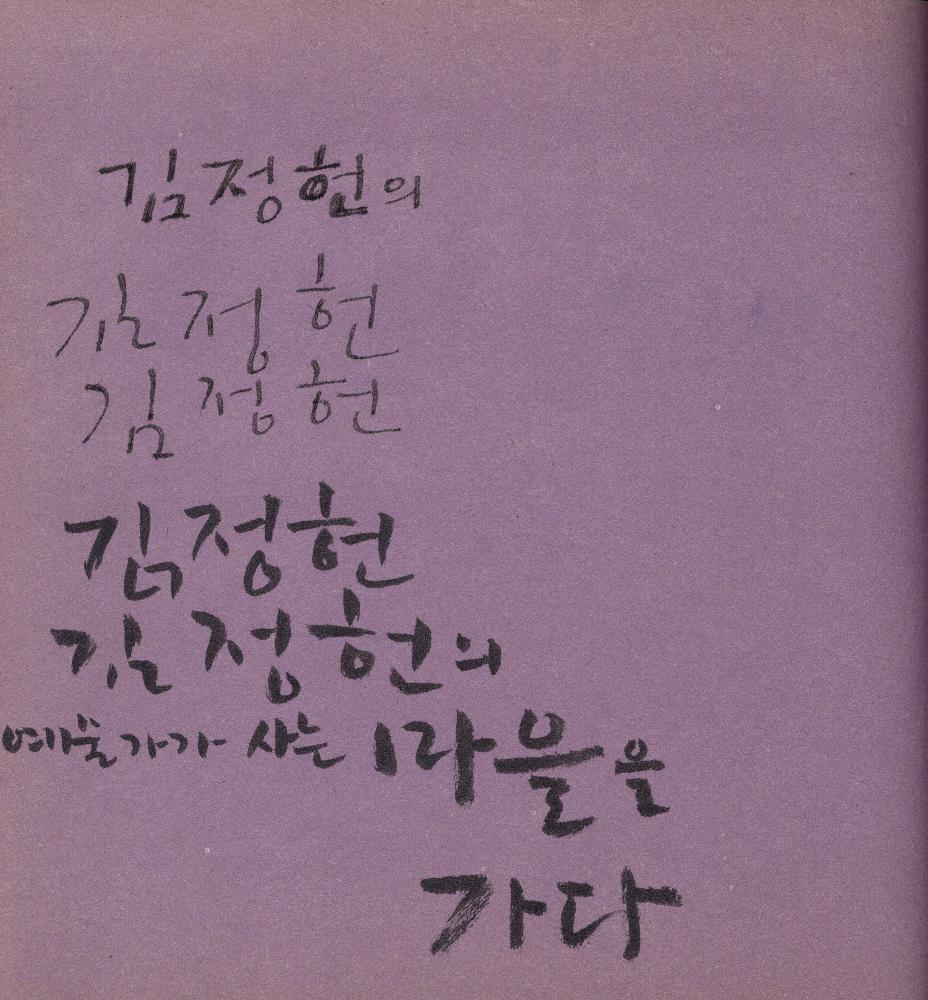 김정헌의
김정헌
김정헌
김정헌
김정헌의
예술가가 사는 마을을
가다